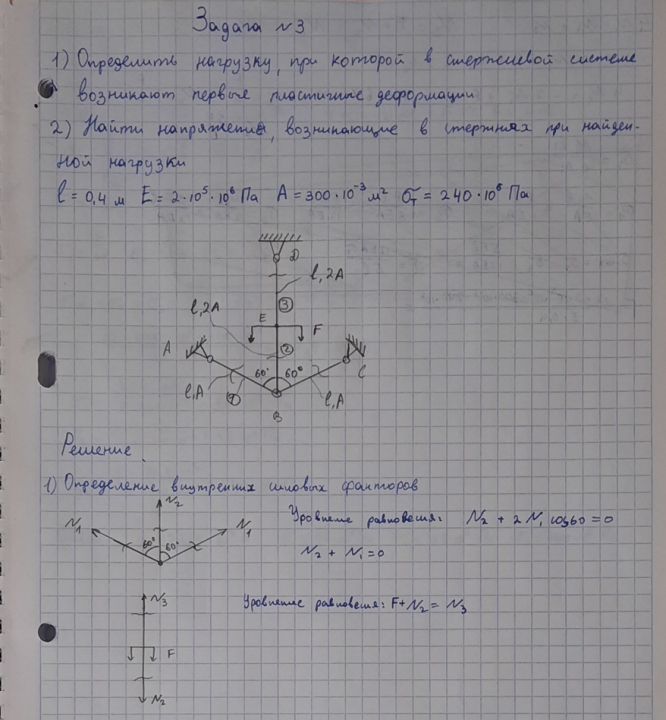 Задача №3
1) Определить нагрузку, при которой в стержневой системе
возникают первые пластичные деформации
2) Найти напряжения, возникающие в стержнях при найден-
ной нагрузки
l = 0,4 м E = 2·10⁵·10⁶ Па A = 300·10⁻³ м² σ_T = 240·10⁶ Па
D
l, 2A
③
l, 2A
E
F
②
A
60° 60°
C
l, A
①
l, A
B
Решение.
1) Определение внутренних силовых факторов
N₂
N₁ N₁
60° 60°
Уровнение равновесия: N₂ + 2N₁ cos60 = 0
N₂ + N₁ = 0
N₃
Уровнение равновесия: F + N₂ = N₃
F
N₂